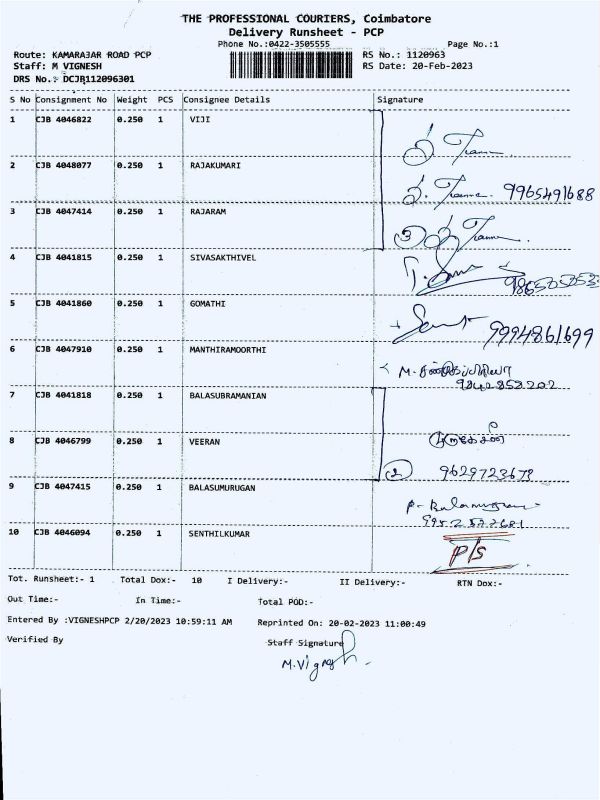 THE PROFESSIONAL COURIERS, Coimbatore
Delivery Runsheet - PCP
Phone No.:0422-3505555 Page No.:1
Route: KAMARAJAR ROAD PCP RS No.: 1120963
Staff: M VIGNESH RS Date: 20-Feb-2023
DRS No.: DCJB112096301
S No Consignment No Weight PCS Consignee Details Signature
1 CJB 4046822 0.250 1 VIJI
2 CJB 4048077 0.250 1 RAJAKUMARI 9965491688
3 CJB 4047414 0.250 1 RAJARAM 3
4 CJB 4041815 0.250 1 SIVASAKTHIVEL
5 CJB 4041860 0.250 1 GOMATHI 9994861699
6 CJB 4047910 0.250 1 MANTHIRAMOORTHI 9842852202
7 CJB 4041818 0.250 1 BALASUBRAMANIAN
8 CJB 4046799 0.250 1 VEERAN 2 9629723678
9 CJB 4047415 0.250 1 BALASUMURUGAN
10 CJB 4046094 0.250 1 SENTHILKUMAR P/S
Tot. Runsheet:- 1 Total Dox:- 10 I Delivery:- II Delivery:- RTN Dox:-
Out Time:- In Time:- Total POD:-
Entered By :VIGNESHPCP 2/20/2023 10:59:11 AM Reprinted On: 20-02-2023 11:00:49
Verified By Staff Signature
M.Vignesh